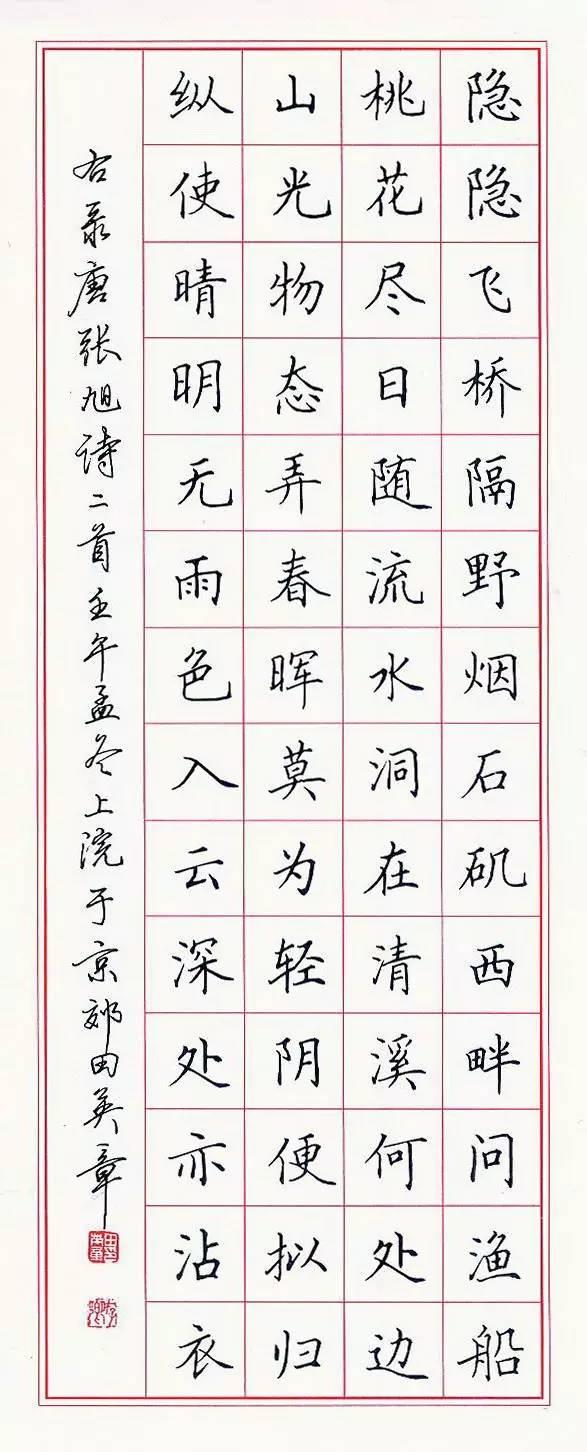 隐隐飞桥隔野烟石矶西畔问渔船
桃花尽日随流水洞在清溪何处边
山光物态弄春晖莫为轻阴便拟归
纵使晴明无雨色入云深处亦沾衣
右录唐张旭诗二首壬午孟冬上浣于京郊田英章